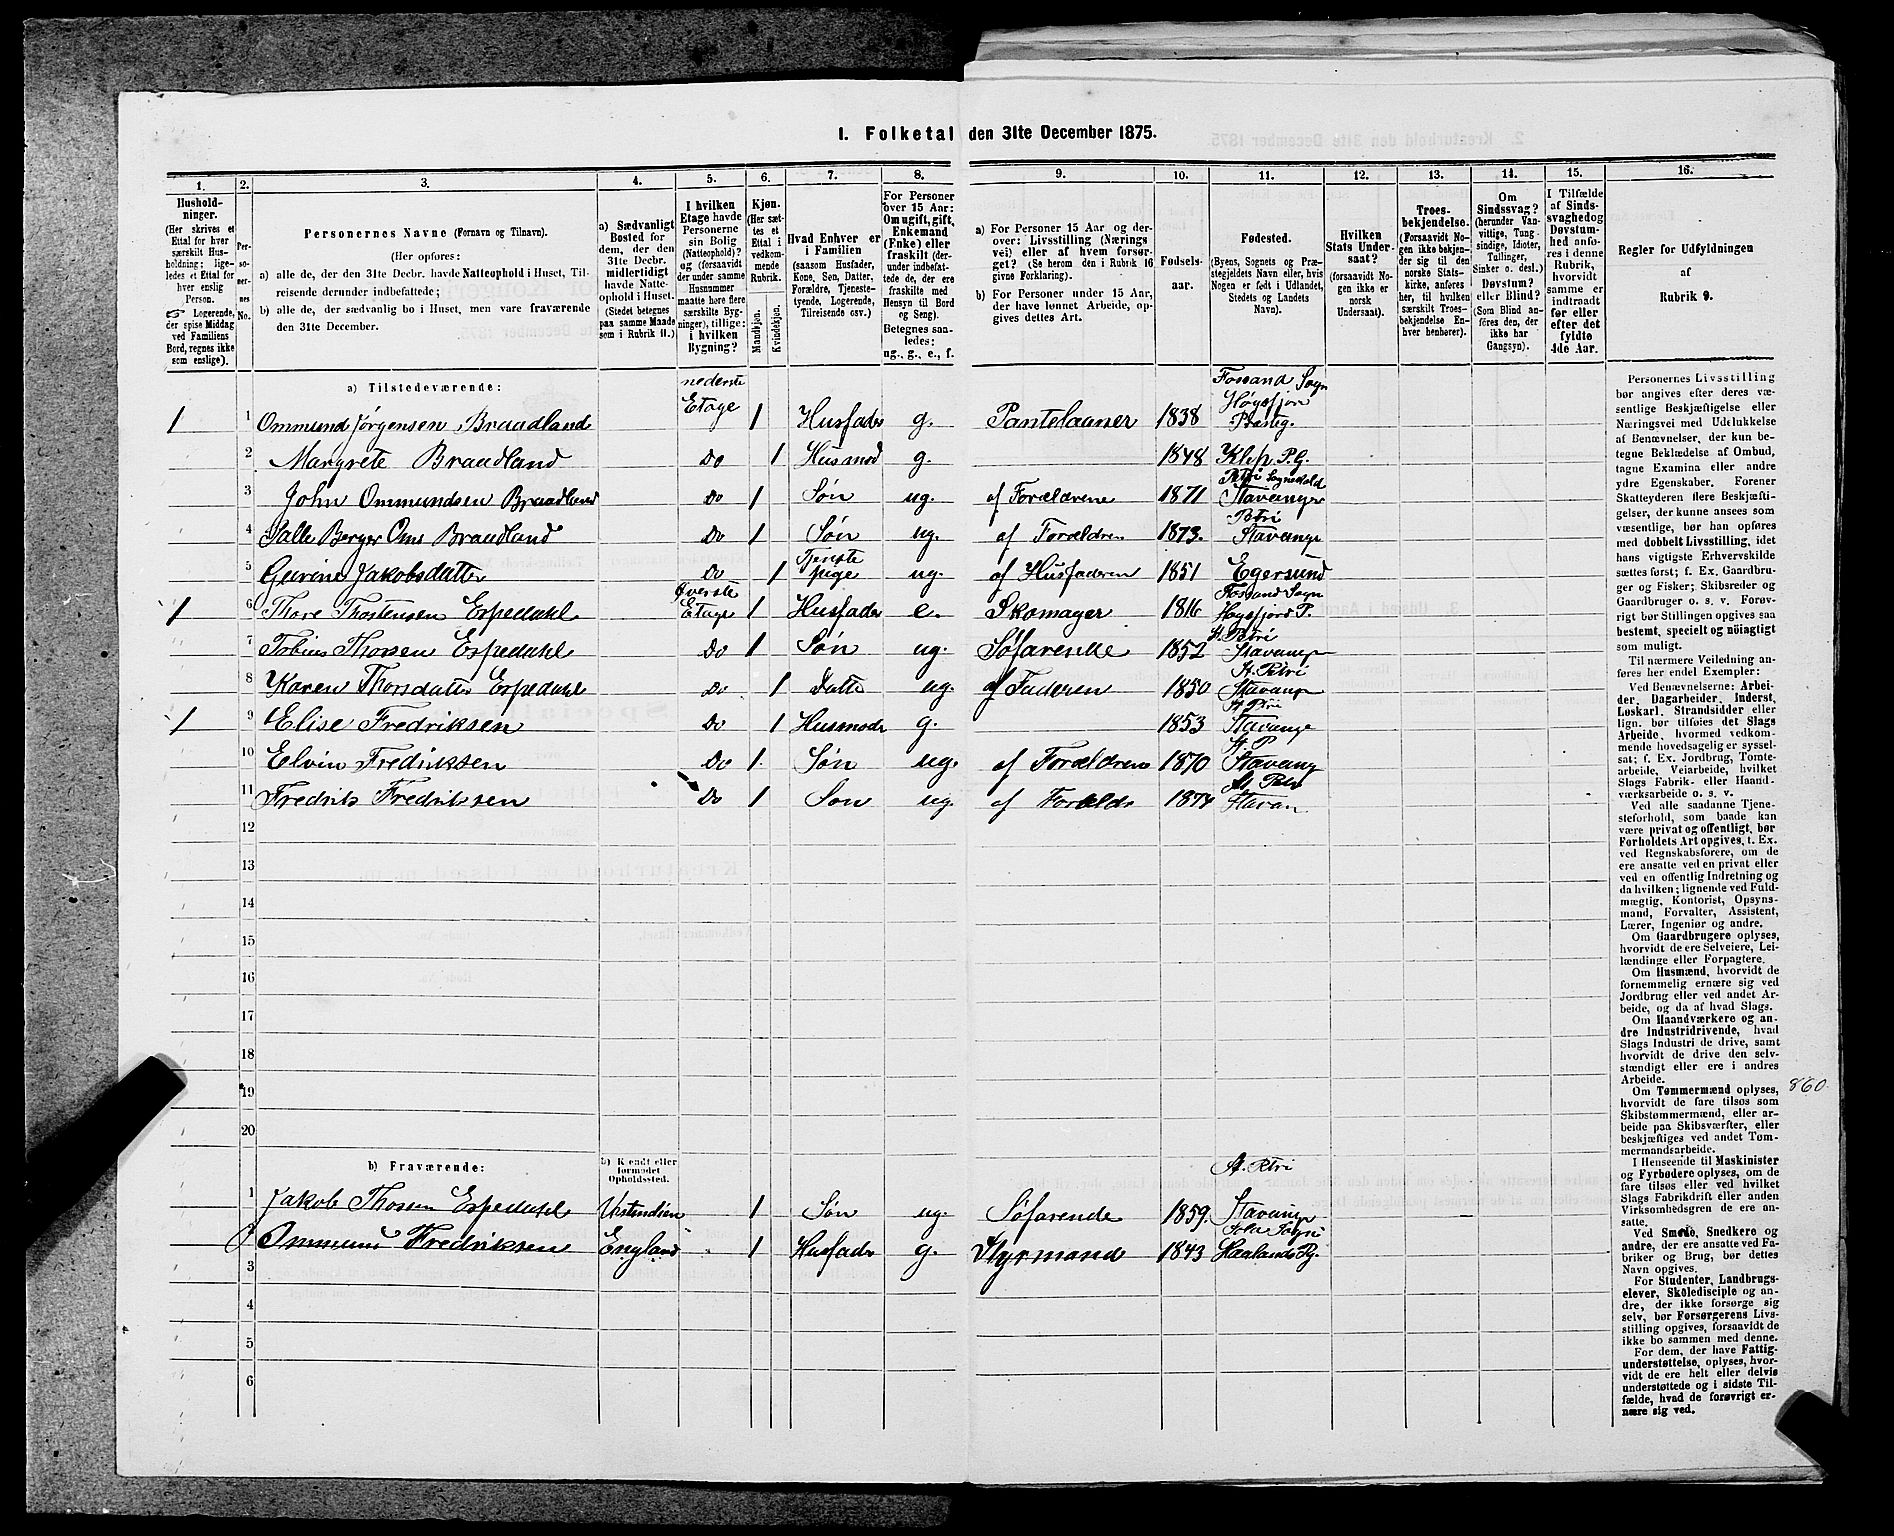 1. Folketal den 31te December 1875.
1. 2. 3. 4. 5. 6. 7. 8. 9. 10. 11. 12. 13. 14. 15. 16.
Hushold-
ninger.
(Her skrives et
Ettal for hver
særskilt Hus-
holdning; lige-
ledes et Ettal for
hver enslig
Person.
Logerende,
der spise Middag
ved Familiens
Bord, regnes ikke
som enslige).
Per-
so-
ner-
nes
No.
Personernes Navne (Fornavn og Tilnavn).
(Her opføres:
a) alle de, der den 31te Decbr. havde Natteophold i Huset, Til-
reisende derunder indbefattede;
b) alle de, der sædvanlig bo i Huset, men vare fraværende
den 31te December.
a) Sædvanligt
Bosted for
dem, der den
31te Decbr.
midlertidigt
havde Natte-
ophold i Huset.
(Stedet betegnes
paa samme Maade
som i Rubrik 11.)
I hvilken
Etage havde
Personerne
sin Bolig
(Natteophold)?
og (forsaavidt
der under samme
Husnummer
maatte høre flere
særskilte Byg-
ninger), tillige:
i hvilken
Bygning?
Kjøn.
(Her sæt-
tes et
Ettal i
vedkom-
mende
Rubrik.
Mandkjøn.
Kvindekjøn.
Hvad Enhver er
i Familien
(saasom Husfader,
Kone, Søn, Datter,
Forældre, Tjeneste-
tyende, Logerende,
Tilreisende osv.)
For Personer
over 15 Aar:
Om ugift, gift,
Enkemand
(Enke) eller
fraskilt (der-
under indbefat-
tede de, der ere
fraskilte med
Hensyn til Bord
og Seng).
Betegnes saa-
ledes:
ug., g., e., f.
a) For Personer 15 Aar og der-
over: Livsstilling (Nærings
vei) eller af hvem forsør-
get? (Se herom den i Rubrik 16
givne Forklaring).
b) For Personer under 15 Aar,
der have lønnet Arbeide, op-
gives dettes Art.
Fødsels-
aar.
Fødested.
(Byens, Sognets og Præ-
stegjeldets Navn eller, hvis
Nogen er født i Udlandet,
Stedets og Landets
Navn).
Hvilken
Stats Under-
saat?
(forsaavidt No-
gen ikke er
norsk
Undersaat).
Troes-
bekjendelse.
(Forsaavidt No-
gen ikke bekjen-
der sig til den
norske Stats-
kirke, anføres
her, til hvilken
særskilt Troes-
bekjendelse En-
hver henhører).
Om
Sindssvag?
(herunder Van-
vittige, Tung-
sindige, Idioter,
Tullinger,
Sinker o. desl.)
Døvstum?
eller Blind?
(Som Blind an-
føres den, der
ikke har
Gangsyn).
I Tilfælde
af Sinds-
svaghed og
Døvstum-
hed anfø-
res i denne
Rubrik,
hvorvidt
samme er
indtraadt
før eller
efter det
fyldte
4de Aar.
Regler for Udfyldningen
af
Rubrik 9.
a) Tilstedeværende:
1 1 Ommund Jørgensen Braadland nederste Etage 1 Husfader g. Pantelaaner 1838 Fossand Sogn Høgsfjor Præstg.
2 Margrete Braadland Do 1 Husmod g. 1848 Klep P.G.
3 John Ommundsen Braadland Do 1 Søn ug. af Forældrene 1871 Petri Stavanger
4 Salle Berger Oms Braadland Do 1 Søn ug. af Forældren 1873. Petri Stavange
5 Gurine Jakobsdatter Do 1 Tjenste pige ug. af Husfaderen 1851 Egersund
1 6 Thore Thostensen Espedahl Øverste Etage 1 Husfader e. Skomager 1816 Fossand Sogn Høgsfjord P.
7 Tobias Thorsen Espedahl Do 1 Søn ug. Søfarende 1852 St. Petri Stavange
8 Karen Thorsdatter Espedahl Do 1 Datte ug. af Faderen 1850 St. Petri Stavange
1 9 Elise Fredriksen Do 1 Husmoder g. 1853 St Petri Stavange
10 Elvin Fredriksen Do 1. Søn ug. af Forældrene 1870 St. P Stavang
11 Fredrik Fredriksen Do 1 Søn ug. af Forælde 1874 St Petri Stavan
12
13
14
15
16
17
18
19
20
b) Fraværende:
b) Kjendt eller
formodet
Opholdssted.
1 Jakob Thorsen Espedahl Vestindien 1 Søn ug. Søfarende 1859. St. Petri Stavange
2 Ommund Fredriksen England 1 Husfader g. Styrmand 1843 Sola Sogn Haalands Pg.
3
4
5
6
Personernes Livsstilling
bør angives efter deres væ-
sentlige Beskjæftigelse eller
Næringsvei med Udelukkelse
af Benævnelser, der kun be-
tegne Beklædelse af Ombud,
tagne Examina eller andre
ydre Egenskaber. Forener
Skatteyderen flere Beskjæfti-
gelser, der kunne ansees som
væsentlige, bør han opføres
med dobbelt Livsstilling, idet
hans vigtigste Erhvervskilde
sættes først; f. Ex. Gaardbru-
ger og Fisker; Skibsreder og
Gaardbruger o. s. v. Forøv-
rigt bør Stillingen opgives saa
bestemt, specielt og nöiagtigt
som muligt.
Til nærmere Veiledning an-
føres her endel Exempler:
Ved Benævnelserne: Arbei-
der, Dagarbeider, Inderst,
Løskarl, Strandsidder eller
lign. bør tilføies det Slags
Arbeide, hvormed vedkom-
mende hovedsagelig er syssel-
sat; f. Ex. Jordbrug, Tomte-
arbeide, Veiarbeide, hvilket
Slags Fabrik- eller Haand-
værksarbeide o. s. v.
Ved alle saadanne Tjene-
steforhold, som baade kan
være privat og offentligt, bør
Forholdets Art opgives, t. Ex.
ved Regnskabsførere, om de
ere ansatte ved en privat eller
ved en offentlig Indretning og
da hvilken; lignende ved Fuld-
mægtig, Kontorist, Opsyns-
mand, Forvalter, Assistent,
Lærer, Ingeniør og andre.
Om Gaardbrugere oplyses,
hvorvidt de ere Selveiere, Lei-
lændinge eller Forpagtere.
Om Husmænd, hvorvidt de
fornemmelig ernære sig ved
Jordbrug eller ved andet Ar-
beide, og da af hvad Slags.
Om Haandværkere og an-
dre Industridrivende, hvad
Slags Industri de drive, samt
hvorvidt de drive den selv-
stændigt eller ere i andres
Arbeide.
Om Tømmermænd oplyses,
hvorvidt de fare tilsøs som
Skibstømmermænd, eller ar-
beide paa Skibsværfter, eller
beskjæftiges ved andet Tøm-
mermandsarbeide.
I Henseende til Maskinister
og Fyrbødere oplyses, om de
fare tilsøs eller ved hvilket
Slags Fabrikdrift eller anden
Virksomhedsgren de ere an-
satte.
Ved Smede, Snedkere og
andre, der ere ansatte ved Fa-
briker og Brug, bør dettes
Navn opgives.
For Studenter, Landbrugs-
elever, Skoledisciple og an-
dre, der ikke forsørge sig
selv, bør Forsørgerens Livs-
stilling opgives, forsaavidt de
ikke bo sammen med denne.
For dem, der have Fattig-
understøttelse, oplyses, hvor-
vidt de ere helt eller delvis
understøttede og i sidste Til-
fælde, hvad de forøvrigt er-
nære sig ved.
860.